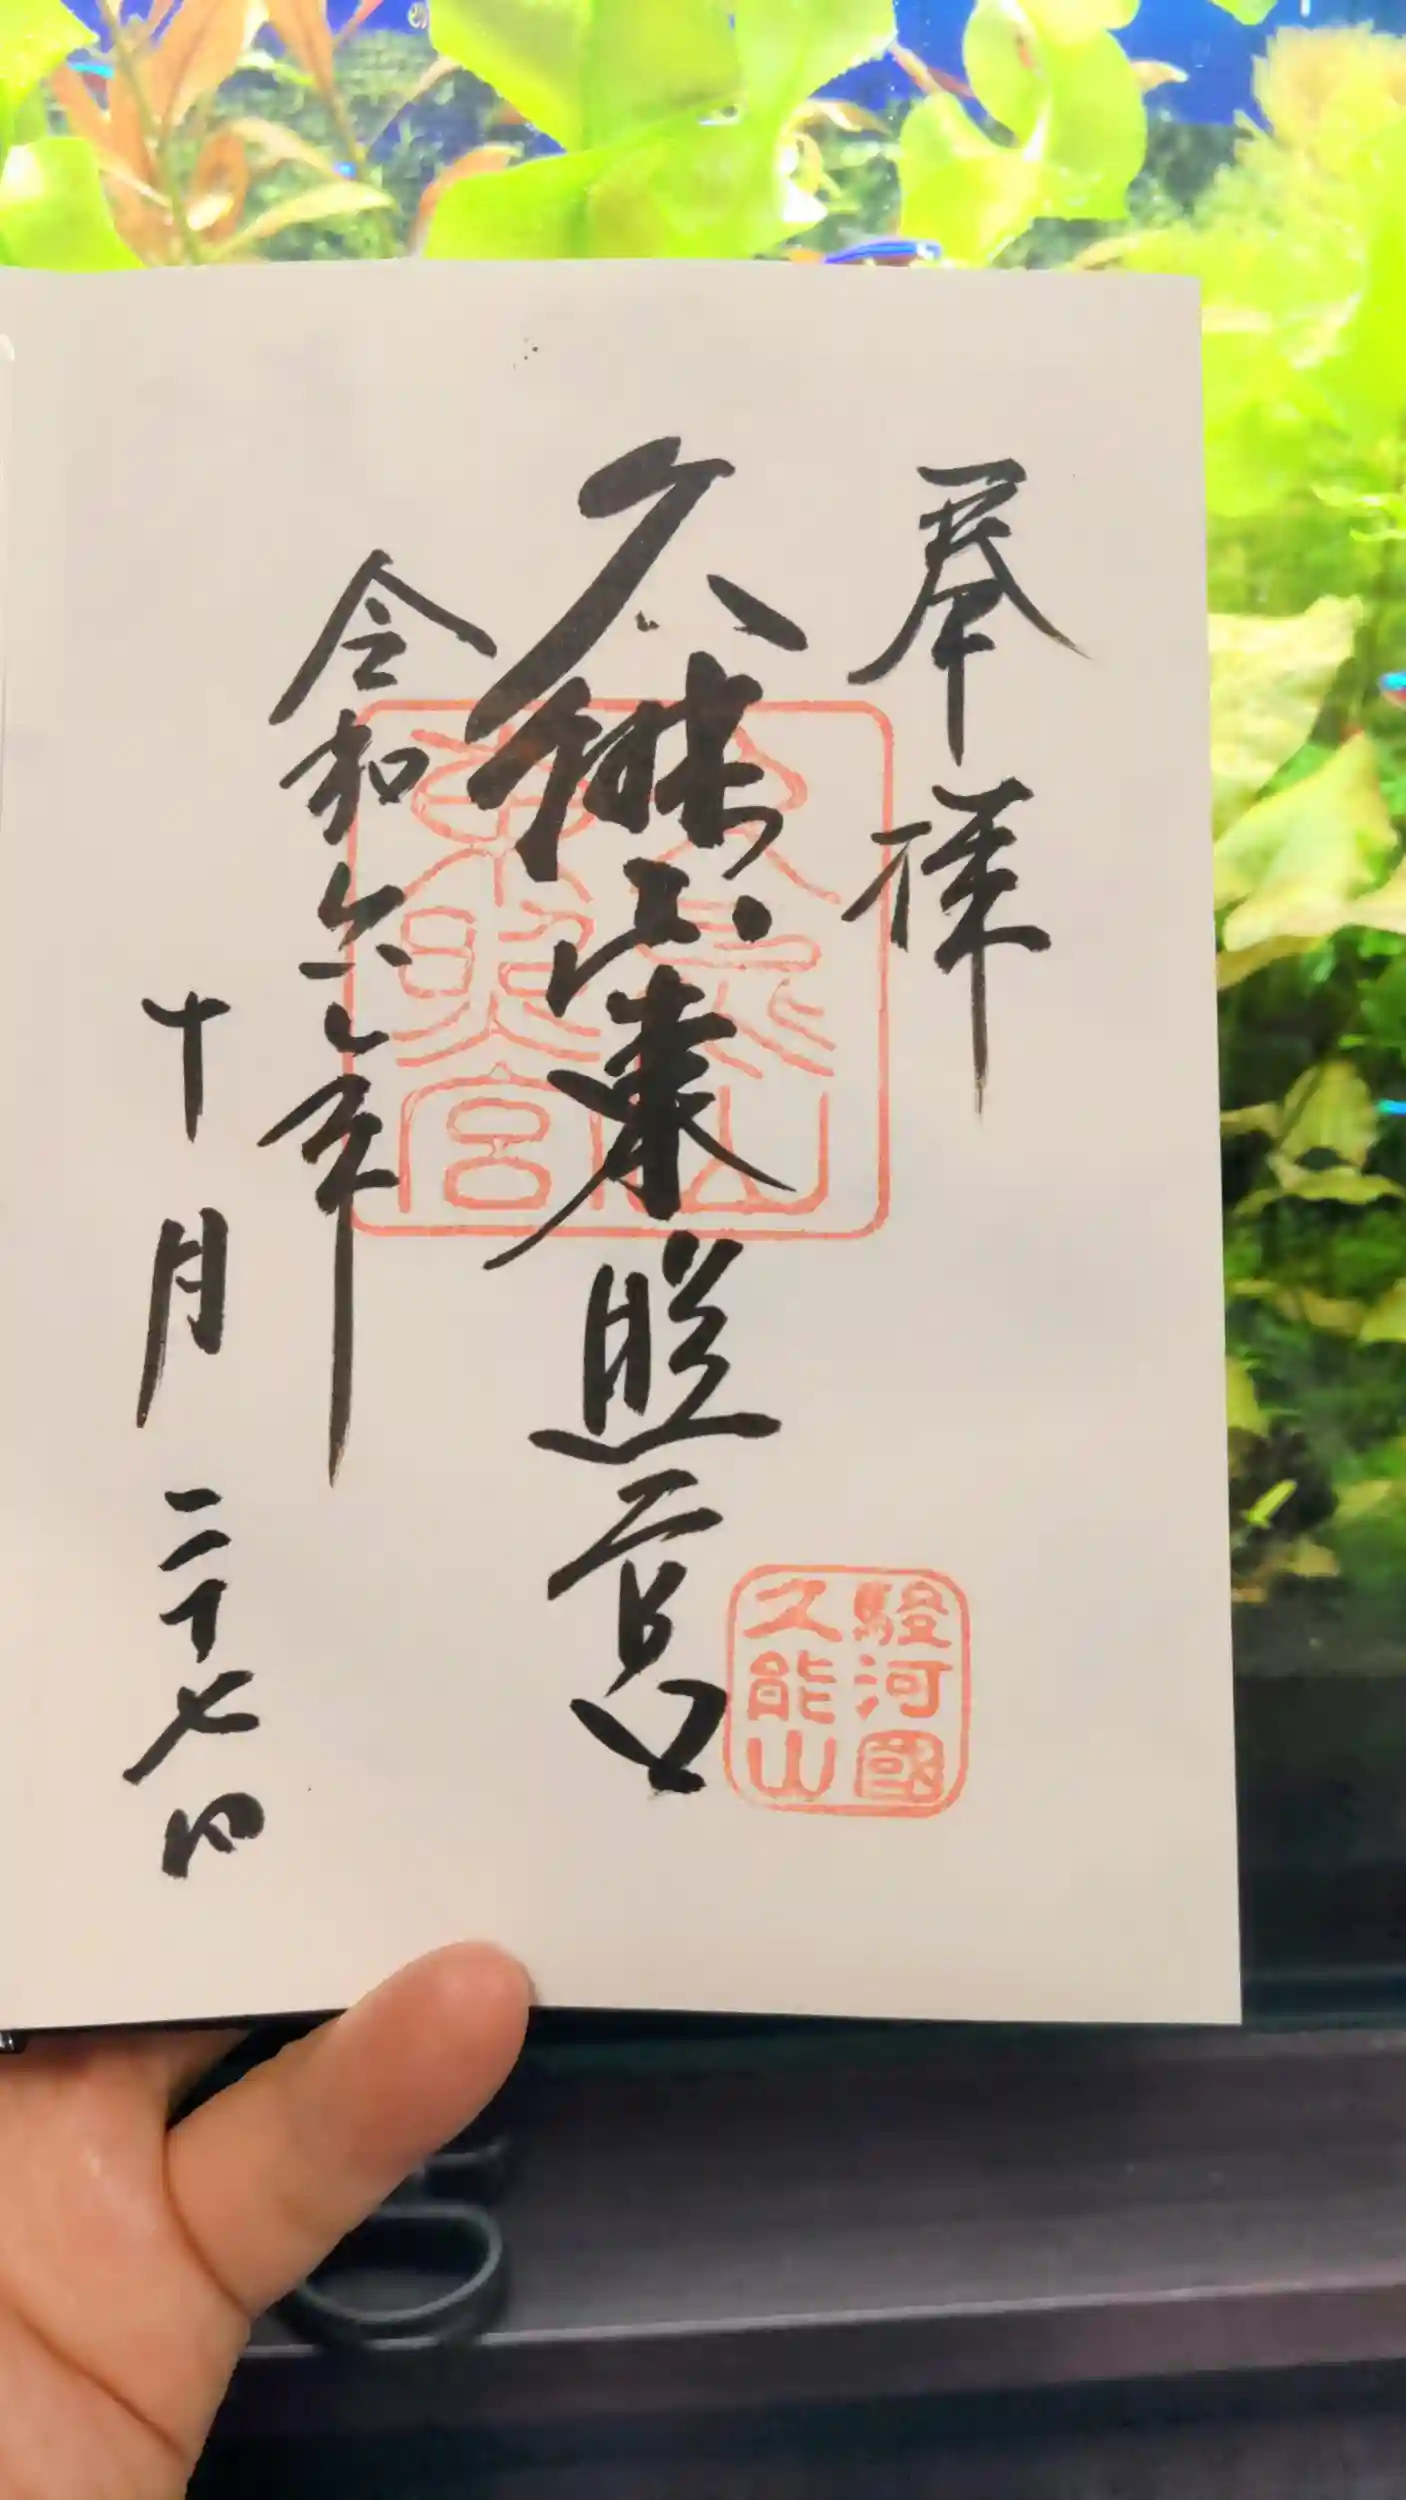 奉拝
久能山東照宮
令和六年
十月二十七日
久能山
東照宮
駿河國
久能山